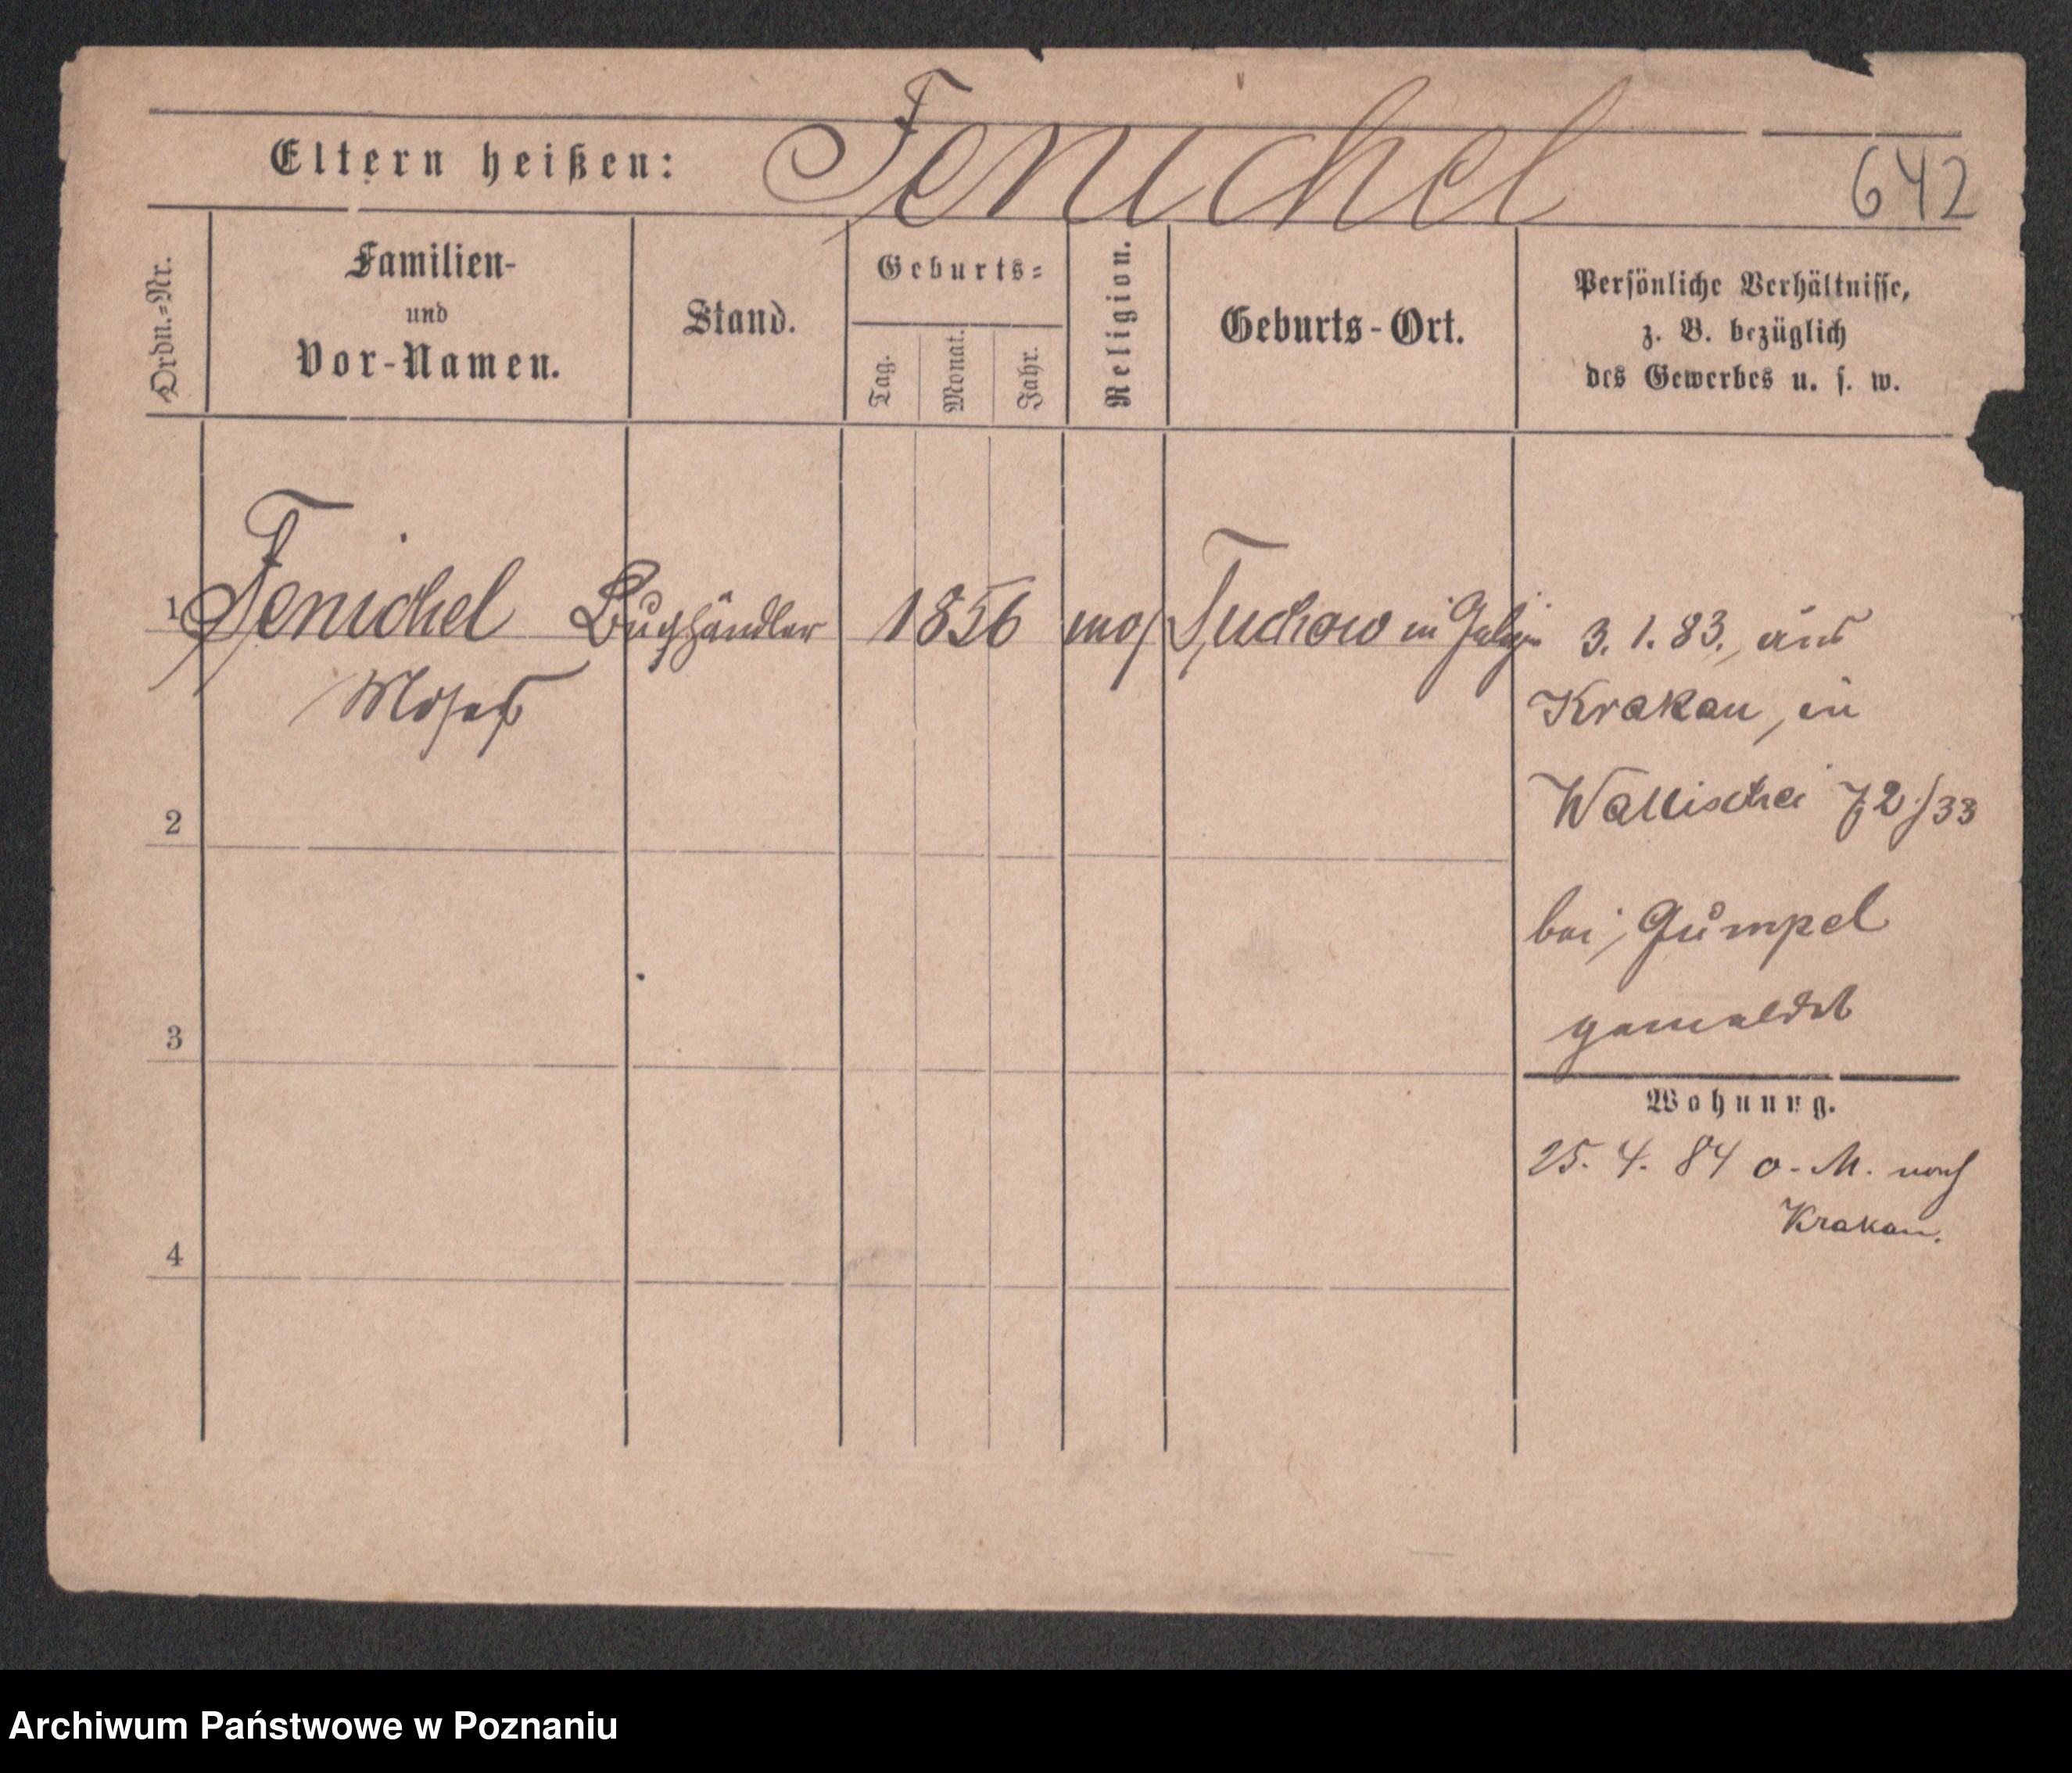 Eltern heißen: Fenichel
642
Ordn.=Nr.
Familien-
und
Vor-Namen.
Stand.
Geburts=
Tag.
Monat.
Jahr.
Religion.
Geburts-Ort.
Persönliche Verhältnisse,
z. B. bezüglich
des Gewerbes u. s. w.
1 Fenichel Buchhändler 1856 mos Tuchow in Galizien
Moses
3. 1. 83., aus
Krakau, in
Wallischei 72/33
bei, Gumpel
gemeldet
2
3
4
Wohnung.
25. 4. 84 o. M. nach
Krakau.
Archiwum Państwowe w Poznaniu